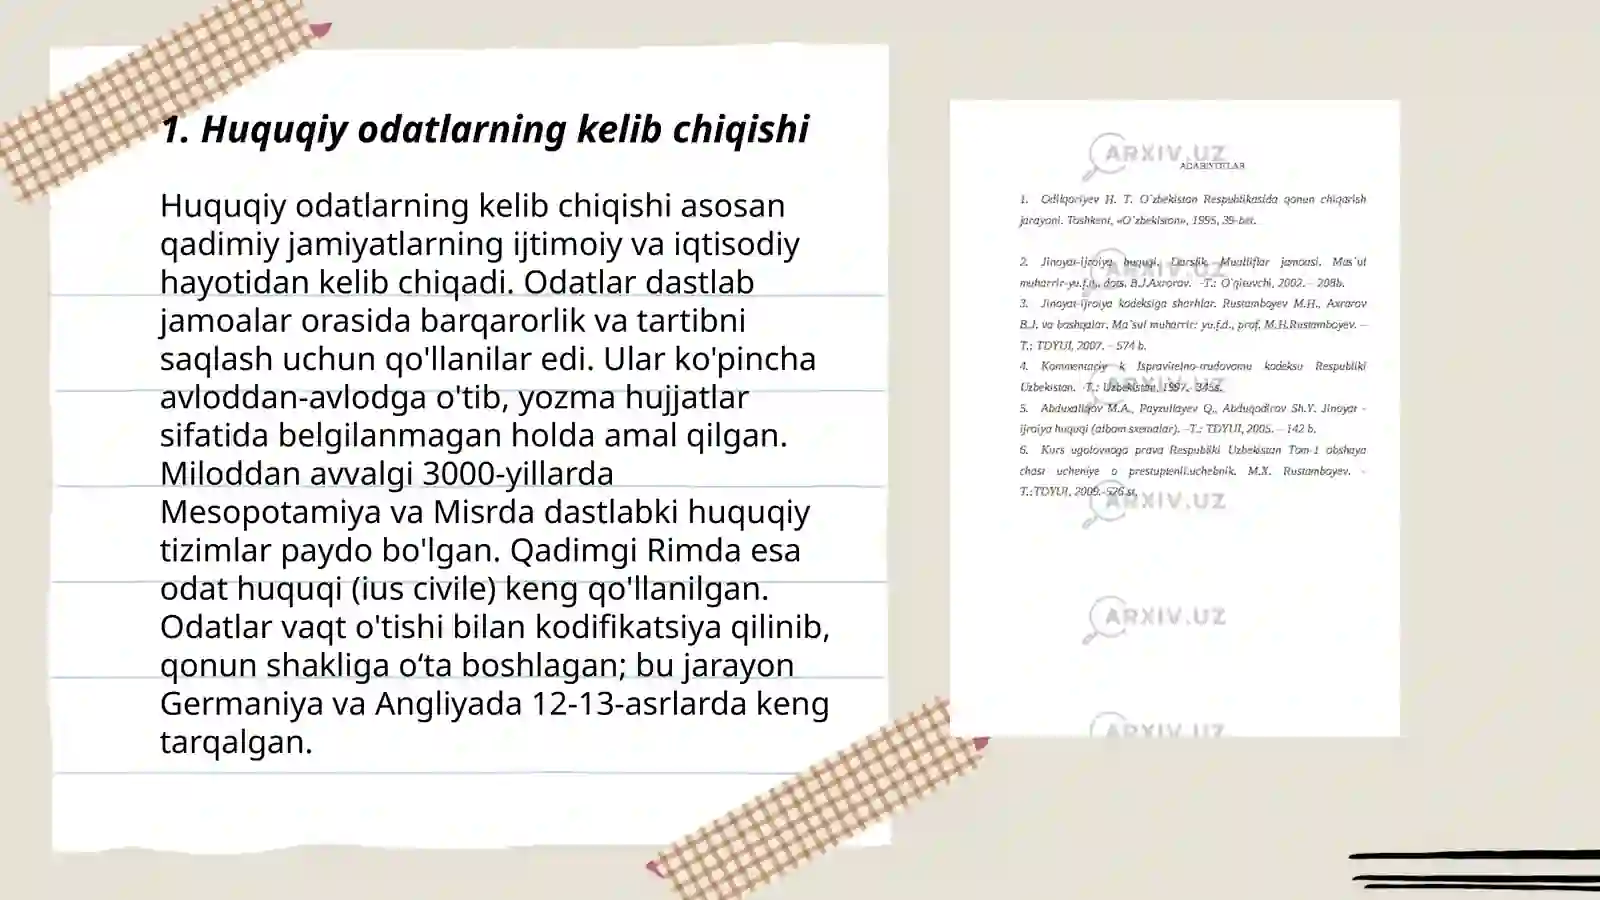 1. Huquqiy odatlarning kelib chiqishi
Huquqiy odatlarning kelib chiqishi asosan
qadimiy jamiyatlarning ijtimoiy va iqtisodiy
hayotidan kelib chiqadi. Odatlar dastlab
jamoalar orasida barqarorlik va tartibni
saqlash uchun qo'llanilar edi. Ular ko'pincha
avloddan-avlodga o'tib, yozma hujjatlar
sifatida belgilanmagan holda amal qilgan.
Miloddan avvalgi 3000-yillarda
Mesopotamiya va Misrda dastlabki huquqiy
tizimlar paydo bo'lgan. Qadimgi Rimda esa
odat huquqi (ius civile) keng qo'llanilgan.
Odatlar vaqt o'tishi bilan kodifikatsiya qilinib,
qonun shakliga o‘ta boshlagan; bu jarayon
Germaniya va Angliyada 12-13-asrlarda keng
tarqalgan.
ARXIV.UZ
ADABIYOTLAR
1. Odilqoriyev H. T. O`zbekiston Respublikasida qonun chiqarish
jarayoni. Toshkent, «O`zbekiston», 1995, 39-bet.
ARXIV.UZ
2. Jinoyat-ijroiya huquqi. Darslik. Mualliflar jamoasi. Mas`ul
muharrir-yu.f.n., dots. B.J.Axrorov. –T.: O`qituvchi, 2002. – 208b.
3. Jinoyat-ijroiya kodeksiga sharhlar. Rustamboyev M.H., Axrarov
B.J. va boshqalar. Ma`sul muharrir: yu.f.d., prof. M.H.Rustamboyev. –
T.: TDYUI, 2007. – 574 b.
4. Kommentariy k Ispravitelno-trudovomu kodeksu Respubliki
Uzbekistan. T.: Uzbekistan, 1997.- 345s.
ARXIV.UZ
5. Abduxaliqov M.A., Payzullayev Q., Abduqodirov Sh.Y. Jinoyat -
ijroiya huquqi (albom sxemalar). –T.: TDYUI, 2005. – 142 b.
6. Kurs ugolovnogo prava Respubliki Uzbekistan Tom-1 obshaya
chast ucheniye o prestuplenii.uchebnik. M.X. Rustamboyev. -
T.:TDYUI, 2009.-526 st.
ARXIV.UZ
ARXIV.UZ
ARXIV.UZ